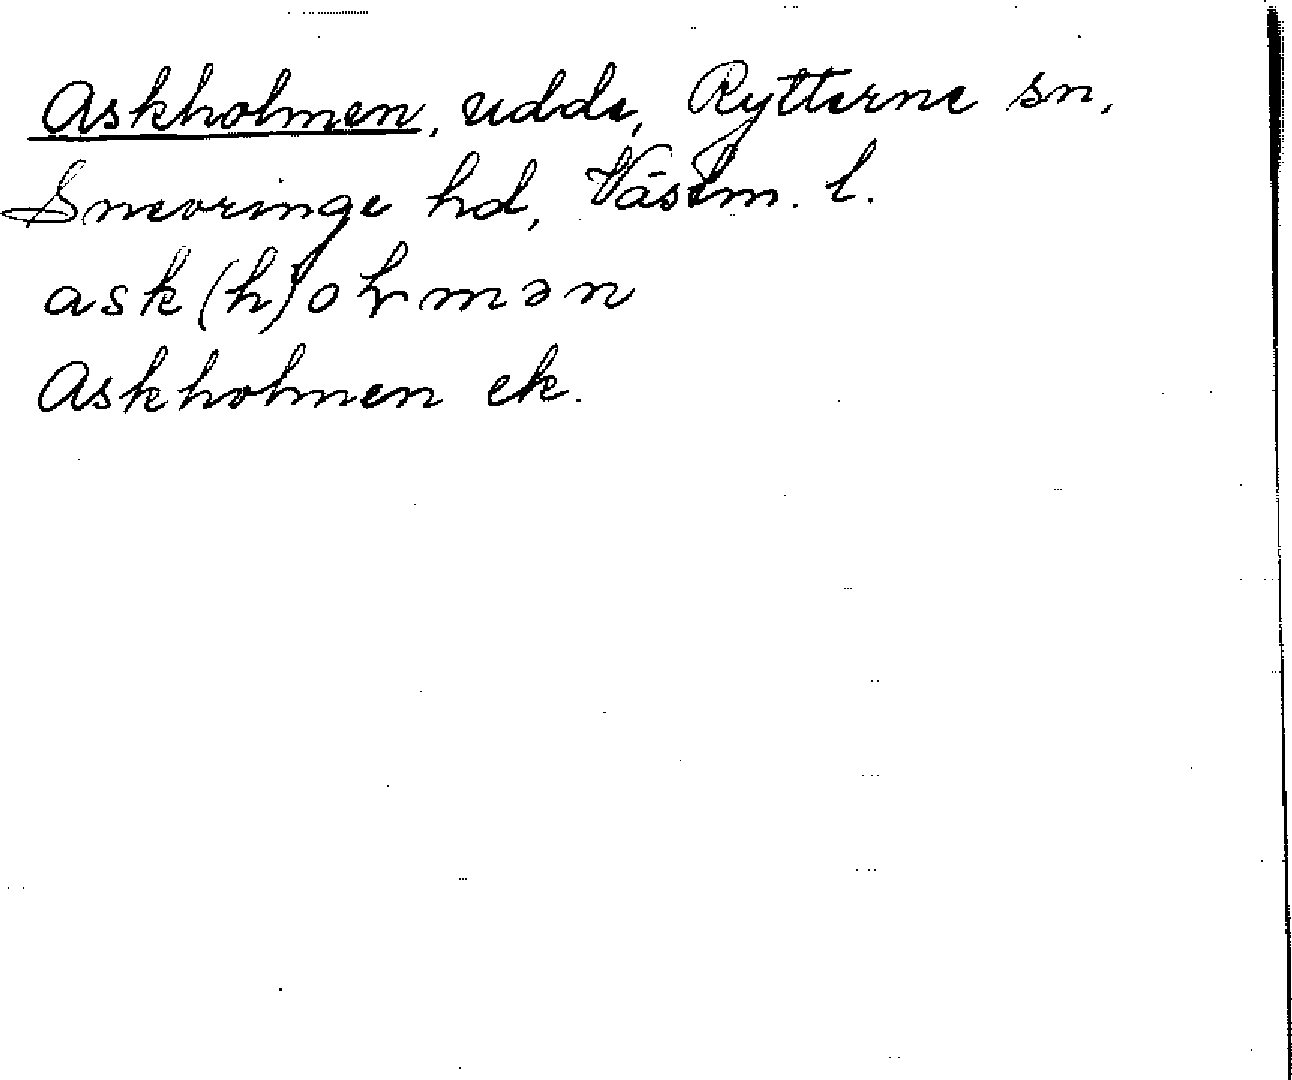 Askholmen, udde, Rytterne sn,
Snevringe hd, Västm. l.
ask(h)oɫmən
Askholmen ek.